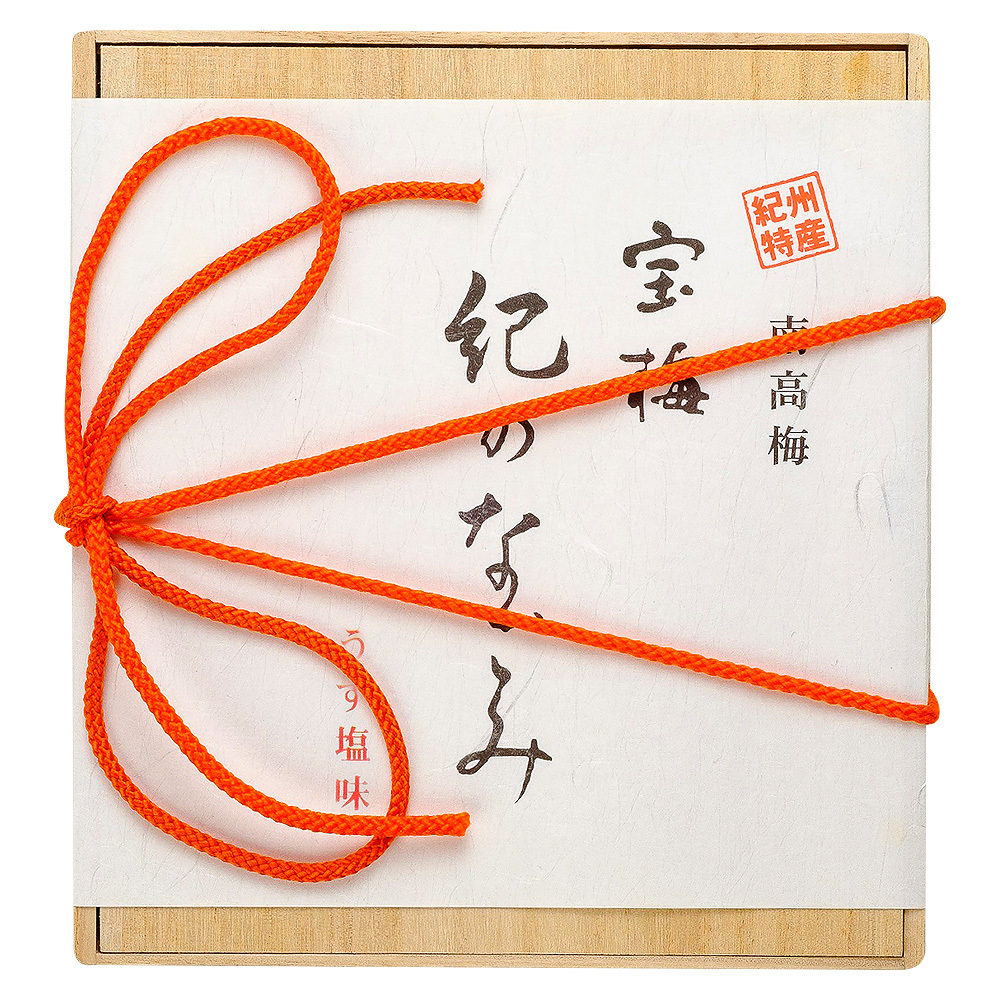 紀州
特産
南高梅
宝梅
紀のなごみ
うす塩味